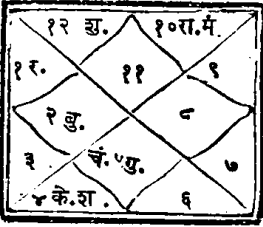 १२ शु. १० रा. मं.
१ र. ११ ९
२ बु. ८
३ चं. ५ गु. ७
४ के. श. ६